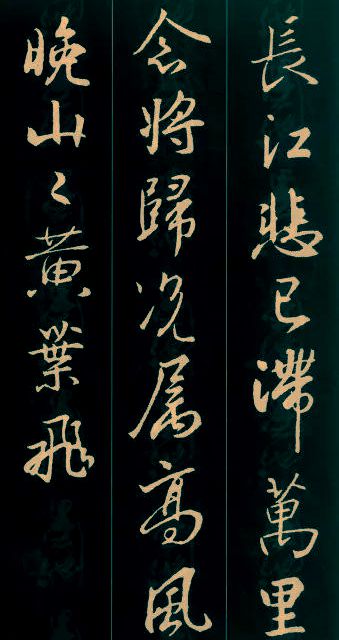 長江悲已滞萬里
念將歸况属高風
晚山〻黄葉飛